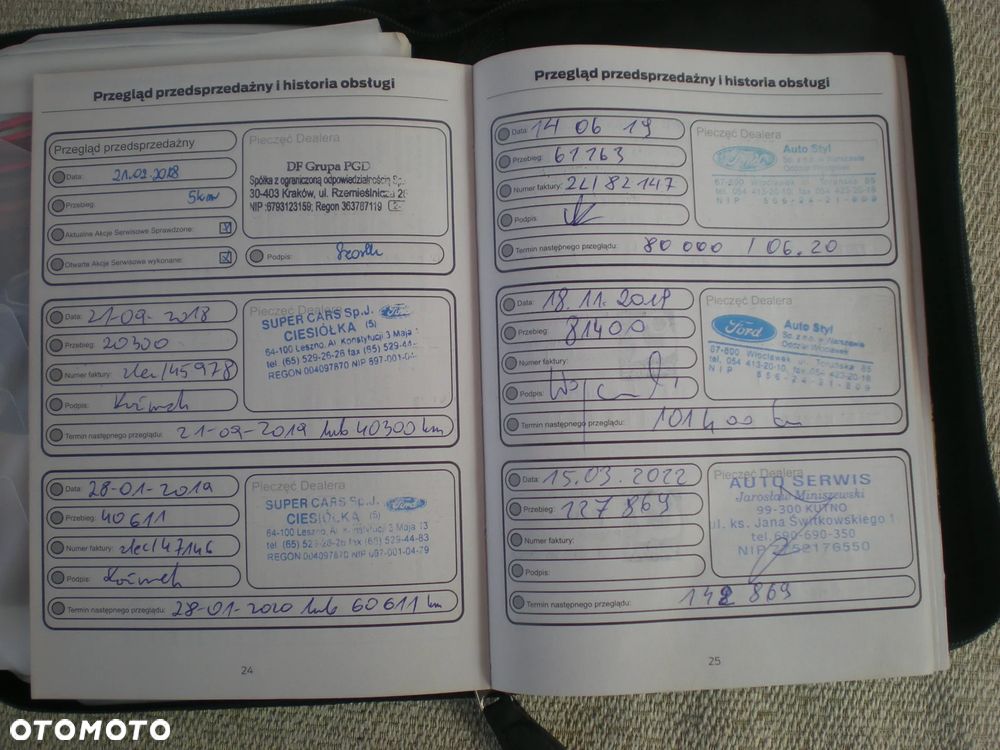 Przegląd przedsprzedażny i historia obsługi
Przegląd przedsprzedażny
Data: 21.02.2018
Przebieg: 5km
Aktualne Akcje Serwisowe Sprawdzone:
Otwarte Akcje Serwisowe wykonane:
Pieczęć Dealera
DF Grupa PGD
Spółka z ograniczoną odpowiedzialnością Sp.
30-403 Kraków, ul. Rzemieślnicza 26
NIP:6793123159, Regon 363787119
Podpis:
Data: 21-09-2018
Przebieg: 20300
Numer faktury: zlec/45978
Podpis:
Termin następnego przeglądu: 21-09-2019 lub 40300 km
Pieczęć Dealera
SUPER CARS Sp.J. Ford
CIESIÓŁKA (5)
64-100 Leszno, Al. Konstytucji 3 Maja
tel. (65) 529-26-26 fax (65) 529-44-
REGON 004097870 NIP 697-001-04-
Data: 28-01-2019
Przebieg: 40611
Numer faktury: zlec/47146
Podpis:
Termin następnego przeglądu: 28-01-2020 lub 60611 km
Pieczęć Dealera
SUPER CARS Sp.J. Ford
CIESIÓŁKA (5)
64-100 Leszno, Al. Konstytucji 3 Maja 13
tel. (65) 529-26-26 fax (65) 529-44-83
REGON 004097870 NIP 697-001-04-79
24
Przegląd przedsprzedażny i historia obsługi
Data: 14 06 19
Przebieg: 61763
Numer faktury: 2L/82147
Podpis:
Termin następnego przeglądu: 80 000 / 06.20
Pieczęć Dealera
Ford Auto Styl
Sp. z o.o. w Warszawie
67-800 Włocławek, ul. Toruńska 85
tel. 054 413-20-10, fax 054 423-20-16
NIP 556-24-21-809
Data: 18.11.2019
Przebieg: 81400
Numer faktury:
Podpis:
Termin następnego przeglądu: 101400 km
Pieczęć Dealera
Ford Auto Styl
Sp. z o.o. w Warszawie
Oddział Włocławek
67-800 Włocławek, ul. Toruńska 85
tel. 054 413-20-10, fax 054 423-20-16
NIP 556-24-21-809
Data: 15.03.2022
Przebieg: 127 869
Numer faktury:
Podpis:
Termin następnego przeglądu: 142 869
Pieczęć Dealera
AUTO SERWIS
Jarosław Miniszewski
99-300 KUTNO
ul. ks. Jana Świtkowskiego 1
tel. 690-690-350
NIP 7752176550
25
OTOMOTO